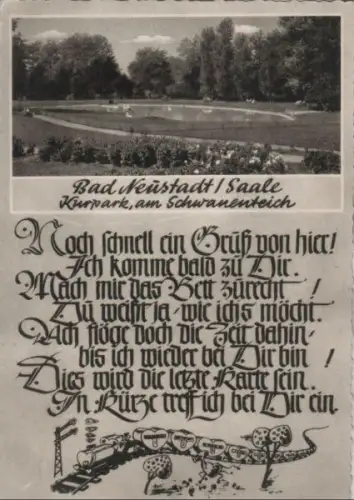 Bad Neustadt/Saale
Kurpark, am Schwanenteich
Noch schnell ein Gruß von hier!
Ich komme bald zu Dir.
Mach mir das Bett zurecht!
Du weißt ja, wie ich's möcht.
Ach flöge doch die Zeit dahin,
bis ich wieder bei Dir bin!
Dies wird die letzte Karte sein.
In Kürze treff ich bei Dir ein.